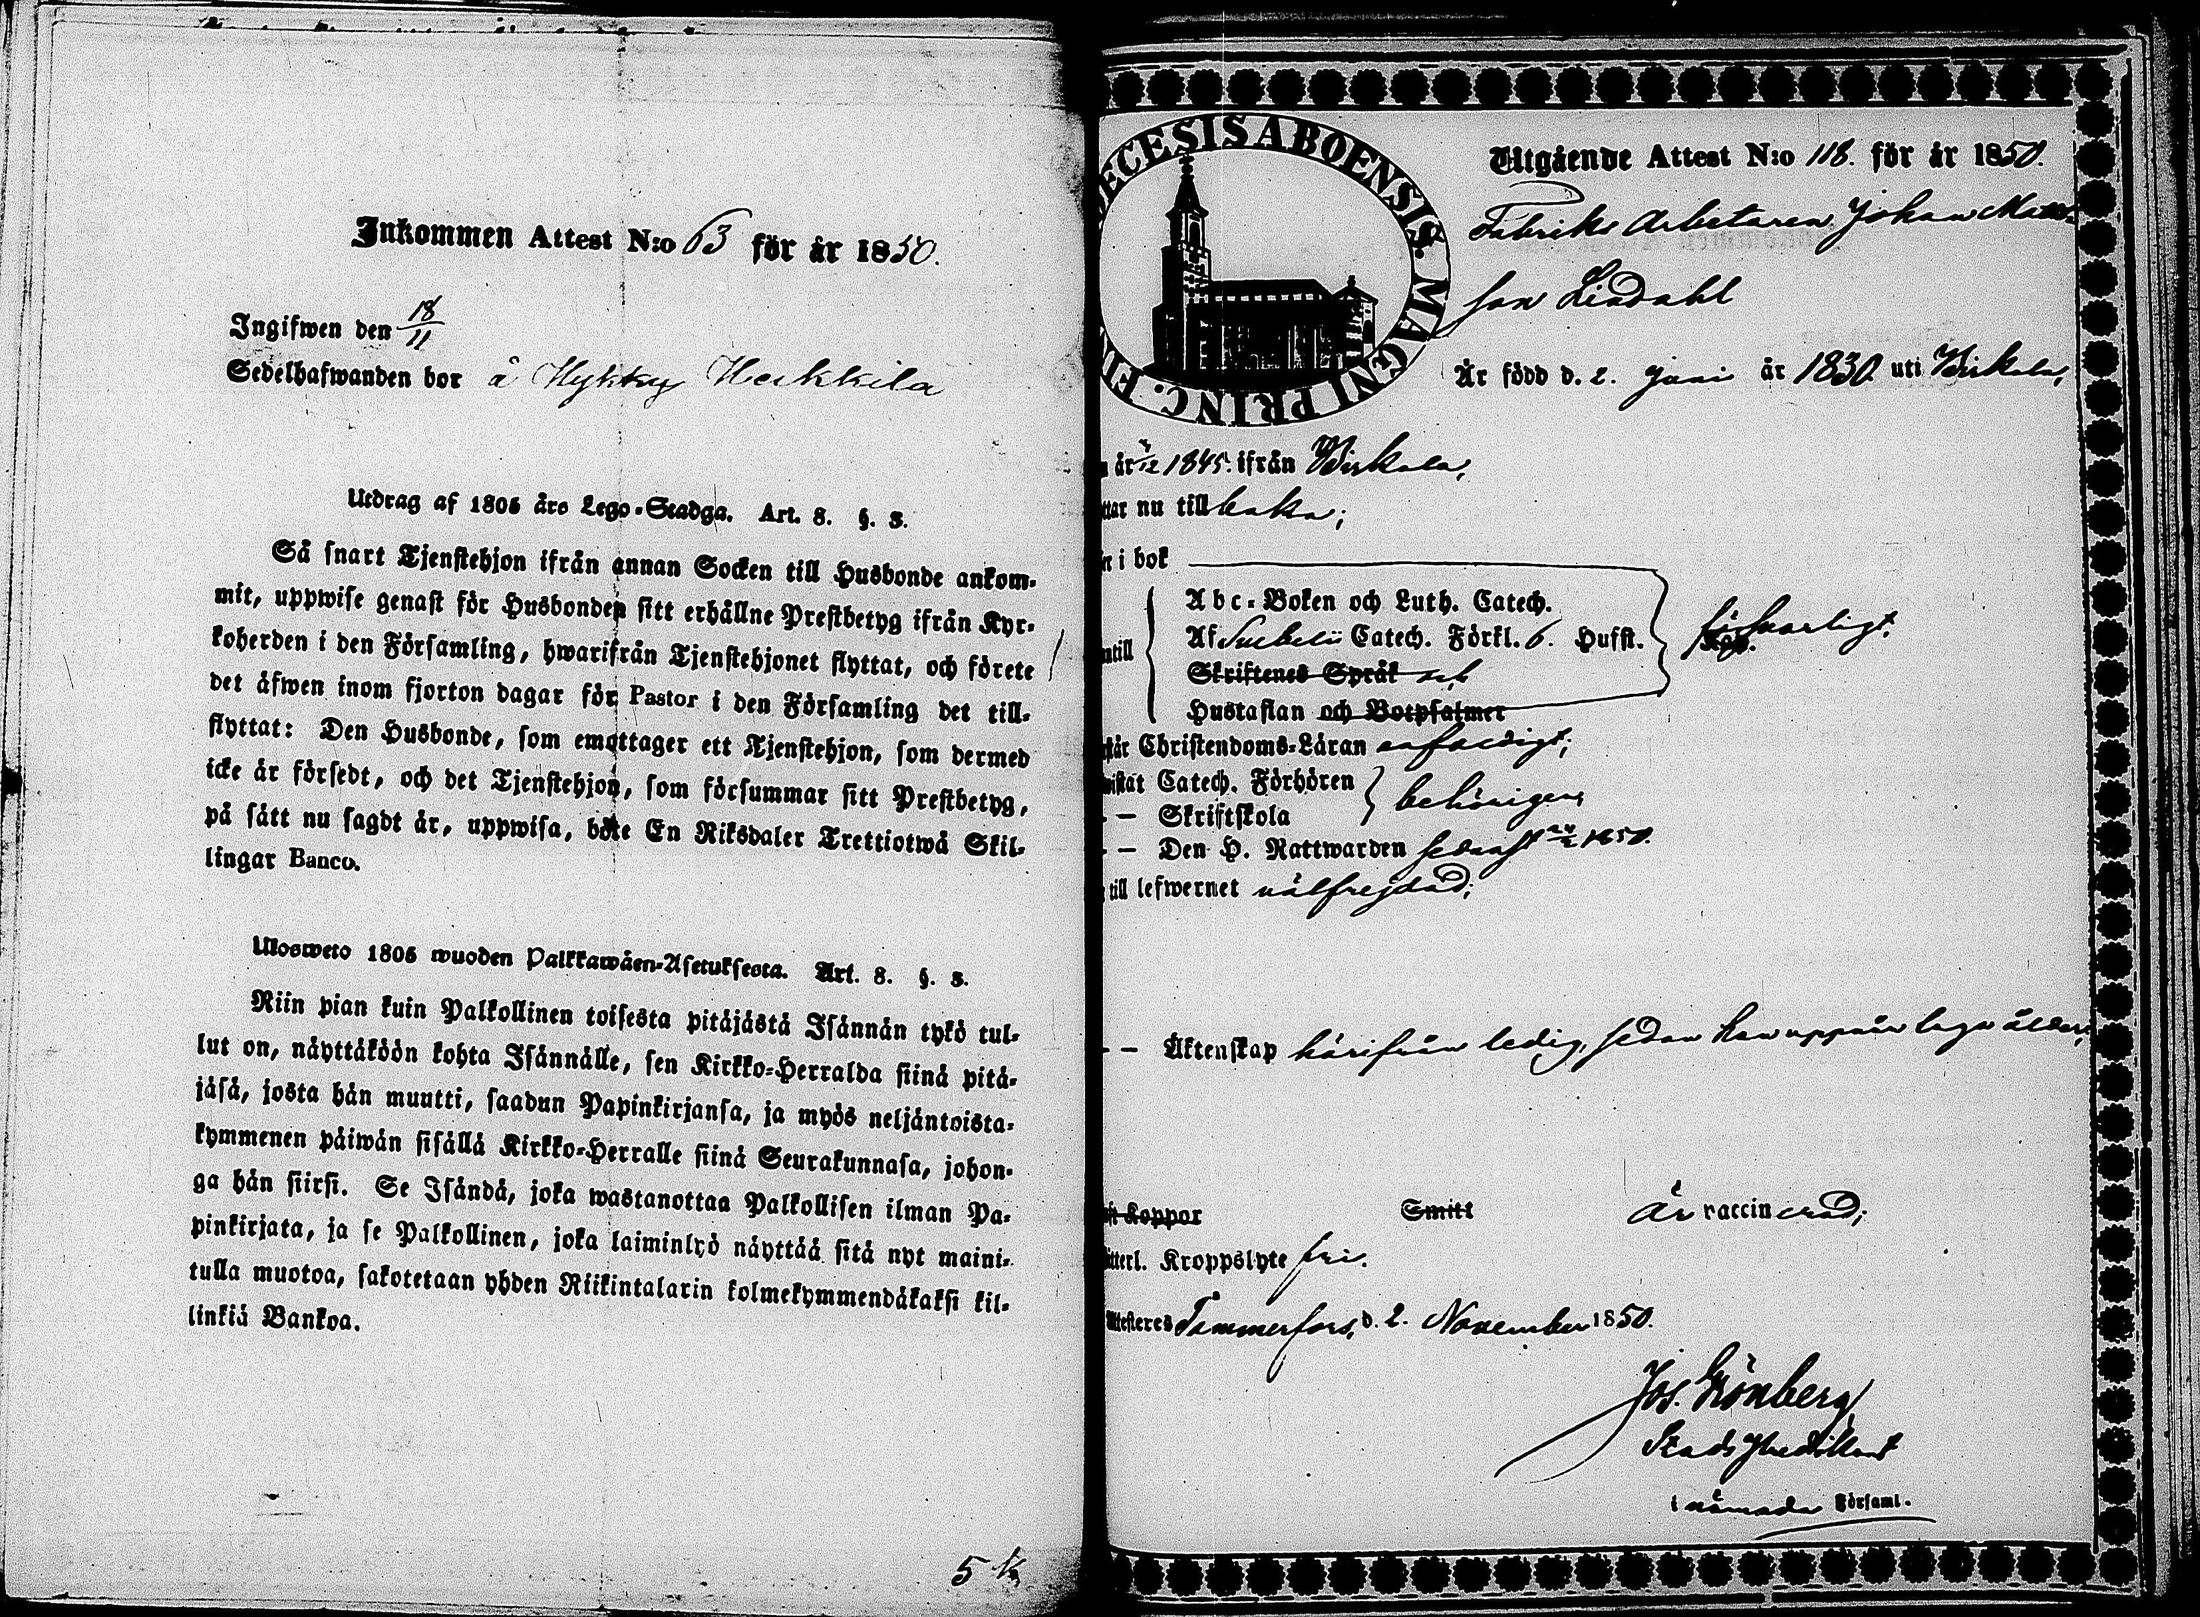 Inkommen Attest N:o 63 för år 1850.
Ingifwen den 18/11
Sedelhafwanden bor å Hykky Heikkilä
Utdrag af 1805 års Lego-Stadga. Art. 8. §. 3.
Så snart Tjenstehjon ifrån annan Socken till Husbonde ankom-
mit, uppwise genast för Husbonden sitt erhållne Prestbetyg ifrån Kyr-
koherden i den Församling, hwarifrån Tjenstehjonet flyttat, och förete
det äfwen inom fjorton dagar för Pastor i den Församling det till-
flyttat: Den Husbonde, som emottager ett Tjenstehjon, som dermed
icke är försedt, och det Tjenstehjon, som försummar sitt Prestbetyg,
på sätt nu sagdt är, uppwisa, böte En Riksdaler Trettiotwå Skil-
lingar Banco.
Ulosweto 1805 wuoden Palkkawäen-Asetuksesta. Art. 8. §. 3.
Niin pian kuin Palkollinen toisesta pitäjästä Isännän tykö tul-
lut on, näyttäköön kohta Isännälle, sen Kirkko-Herralda siinä pitä-
jäsä, josta hän muutti, saadun Papinkirjansa, ja myös neljäntoista-
kymmenen päiwän sisällä Kirkko-Herralle siinä Seurakunnasa, johon-
ga hän siirsi. Se Isändä, joka wastanottaa Palkollisen ilman Pa-
pinkirjata, ja se Palkollinen, joka laiminlyö näyttää sitä nyt maini-
tulla muotoa, sakotetaan yhden Riikintalarin kolmekymmendäkaksi kil-
linkiä Bankoa.
5 k
ECESIS ABOENSIS. MAGNI PRINC. FI
Utgående Attest N:o 118. för år 1850.
Fabriks Arbetaren Johan Matts-
son Lindahl
Är född d. 2. Juni år 1830. uti Birkala,
år 1845. ifrån Birkala,
ttar nu till baka;
er i bok
Abc-Boken och Luth. Catech.
ntill Af Svebelii Catech. Förkl. 6. Husst. försvarligt.
Skriftenes Språk och
Hustaflan och Botpsalmer
står Christendoms-Läran enfaldigt;
wistat Catech. Förhören
- - Skriftskola behörigen,
- - Den H. Nattwarden sednast 1850.
till lefwernet välfrejdad;
- - Äktenskap härifrån ledig, sedan han uppnår laga ålder,
ft Koppor Smitt Är vaccinerad;
itterl. Kroppslyte fri.
Attesteres Tammerfors, d. 2. November 1850.
Jos. Grönberg
Stads Predikant
i nämnde Församl.